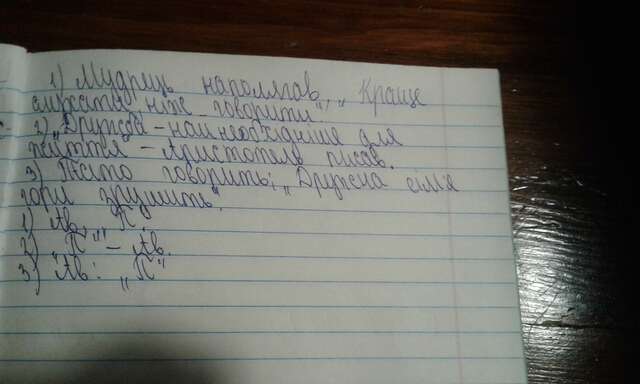 1) Мудрець наполягав, „Краще
слухати, ніж говорити".
2) „Дружба – найнеобхідніше для
життя – Аристотель писав.
3) Тато говорить: „Дружна сім'я
гори зрушить".
1) Ав, „П".
2) „П" – Ав.
3) Ав: „П"